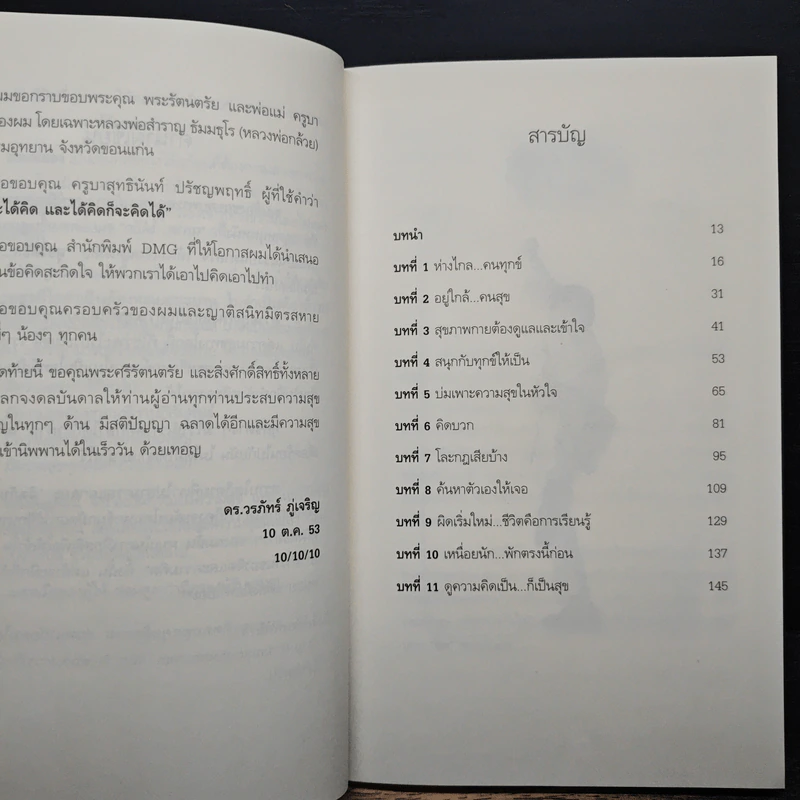 ผมขอกราบขอบพระคุณ พระรัตนตรัย และพ่อแม่ ครูบา
ของผม โดยเฉพาะหลวงพ่อสำราญ ธัมมธุโร (หลวงพ่อกล้วย)
มอุทยาน จังหวัดขอนแก่น
อขอบคุณ ครูบาสุทธินันท์ ปรัชญพฤทธิ์ ผู้ที่ใช้คำว่า
ะได้คิด และได้คิดก็จะคิดได้”
อขอบคุณ สำนักพิมพ์ DMG ที่ให้โอกาสผมได้นำเสนอ
นข้อคิดสะกิดใจ ให้พวกเราได้เอาไปคิดเอาไปทำ
อขอบคุณครอบครัวของผมและญาติสนิทมิตรสหาย
ๆ น้องๆ ทุกคน
ดท้ายนี้ ขอคุณพระศรีรัตนตรัย และสิ่งศักดิ์สิทธิ์ทั้งหลาย
ลกจงดลบันดาลให้ท่านผู้อ่านทุกท่านประสบความสุข
ญในทุกๆ ด้าน มีสติปัญญา ฉลาดได้อีกและมีความสุข
เข้านิพพานได้ในเร็ววัน ด้วยเทอญ
ดร.วรภัทร์ ภู่เจริญ
10 ต.ค. 53
10/10/10
สารบัญ
บทนำ 13
บทที่ 1 ห่างไกล...คนทุกข์ 16
บทที่ 2 อยู่ใกล้...คนสุข 31
บทที่ 3 สุขภาพกายต้องดูแลและเข้าใจ 41
บทที่ 4 สนุกกับทุกข์ให้เป็น 53
บทที่ 5 บ่มเพาะความสุขในหัวใจ 65
บทที่ 6 คิดบวก 81
บทที่ 7 โละกฎเสียบ้าง 95
บทที่ 8 ค้นหาตัวเองให้เจอ 109
บทที่ 9 ผิดเริ่มใหม่...ชีวิตคือการเรียนรู้ 129
บทที่ 10 เหนื่อยนัก...พักตรงนี้ก่อน 137
บทที่ 11 ดูความคิดเป็น...ก็เป็นสุข 145